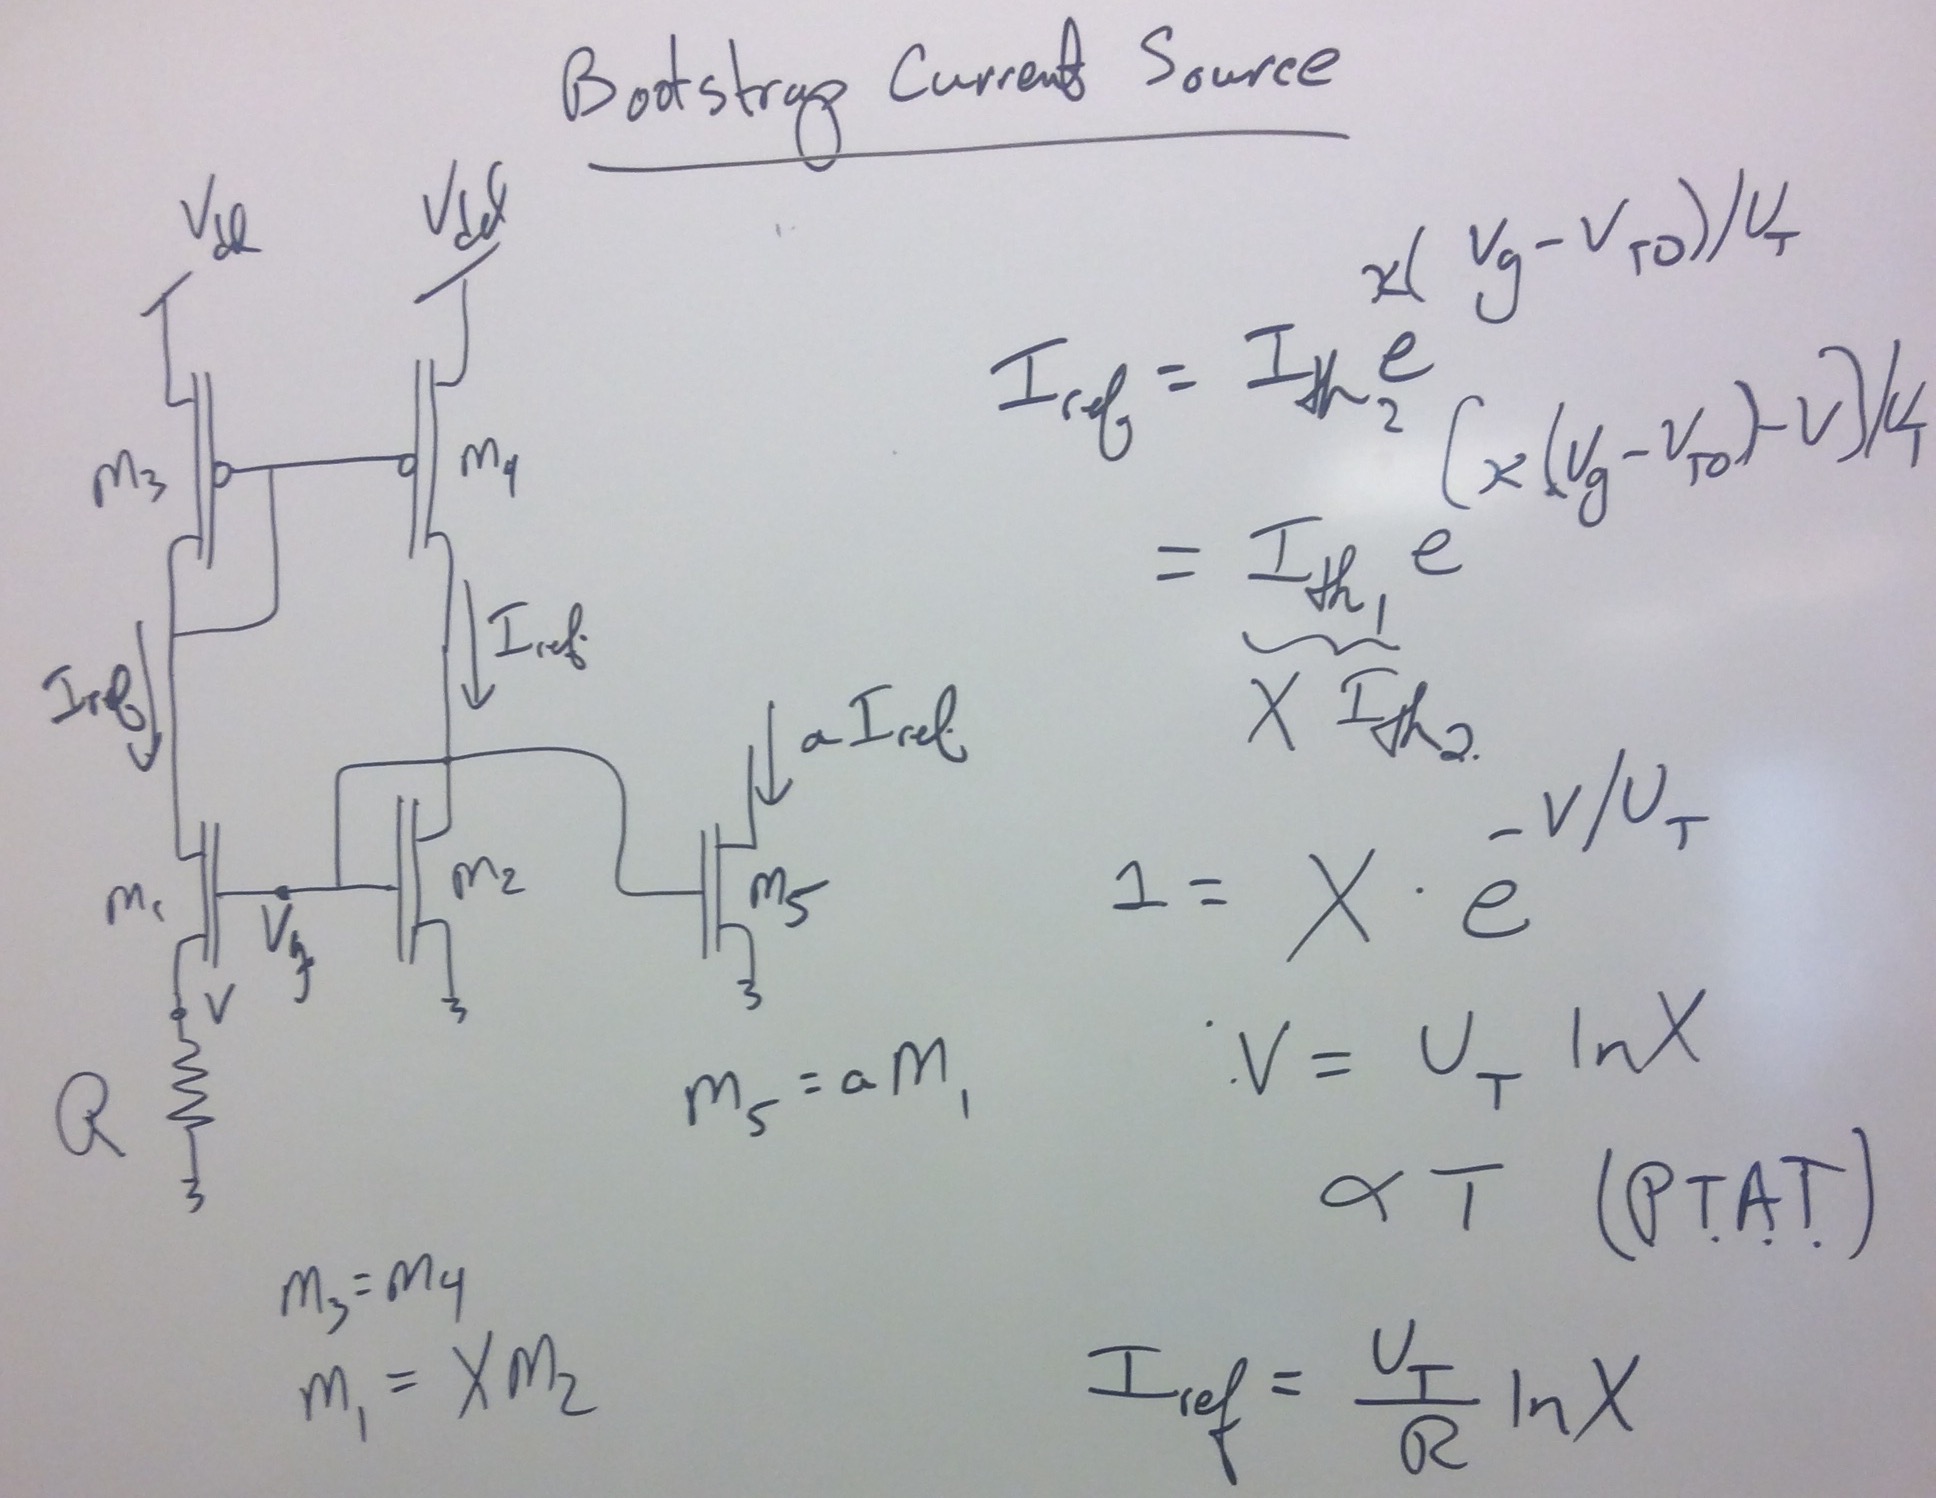 Bootstrap Current Source
Vdd
Vdd
M3
M4
Iref
Iref
a Iref
M1
Vg
M2
M5
V
R
M5 = a M1
M3 = M4
M1 = X M2
Iref = Ith2 e^κ(Vg - VT0)/UT
= Ith1 e^[κ(Vg - VT0) - V]/UT
X Ith2
1 = X · e^-V/UT
V = UT ln X
∝ T (P.T.A.T.)
Iref = UT/R ln X